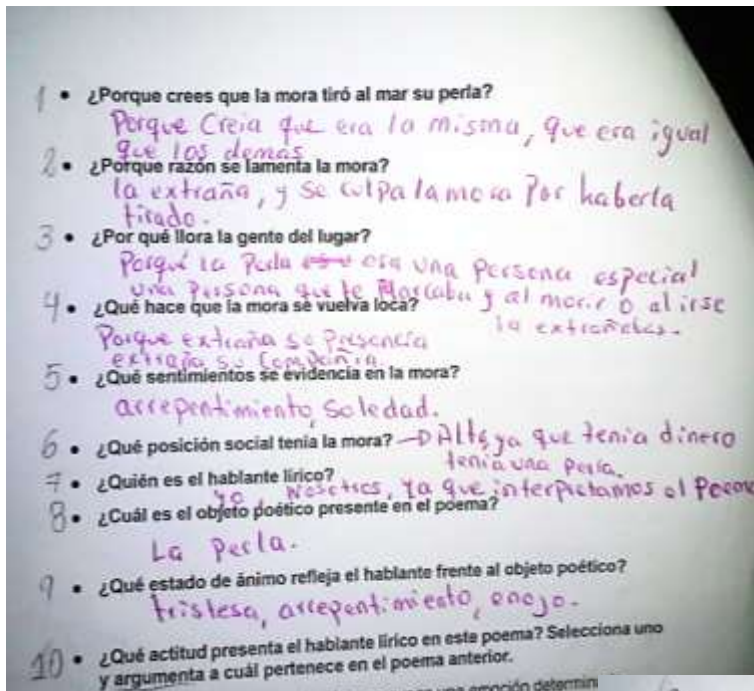 1 • ¿Porque crees que la mora tiró al mar su perla?
Porque Creia que era la misma, que era igual
que los demas
2 • ¿Porque razón se lamenta la mora?
la extraña, y se culpa la mora Por haberla
tirado.
3 • ¿Por qué llora la gente del lugar?
Porque la Perla era una Persona especial
una Persona que te Marcaba y al morir o al irse
la extrañabas.
4 • ¿Qué hace que la mora se vuelva loca?
Porque extraña su Presencia
extraña su Compañia.
5 • ¿Qué sentimientos se evidencia en la mora?
arrepentimiento, Soledad.
6 • ¿Qué posición social tenia la mora? Alta, ya que tenia dinero
tenia una perla.
7 • ¿Quién es el hablante lírico?
yo, Nosotros, Ya que interpretamos el Poema
8 • ¿Cuál es el objeto poético presente en el poema?
La Perla.
9 • ¿Qué estado de ánimo refleja el hablante frente al objeto poético?
tristesa, arrepentimiento, enojo.
10 • ¿Qué actitud presenta el hablante lírico en este poema? Selecciona uno
y argumenta a cuál pertenece en el poema anterior.
una emoción determin